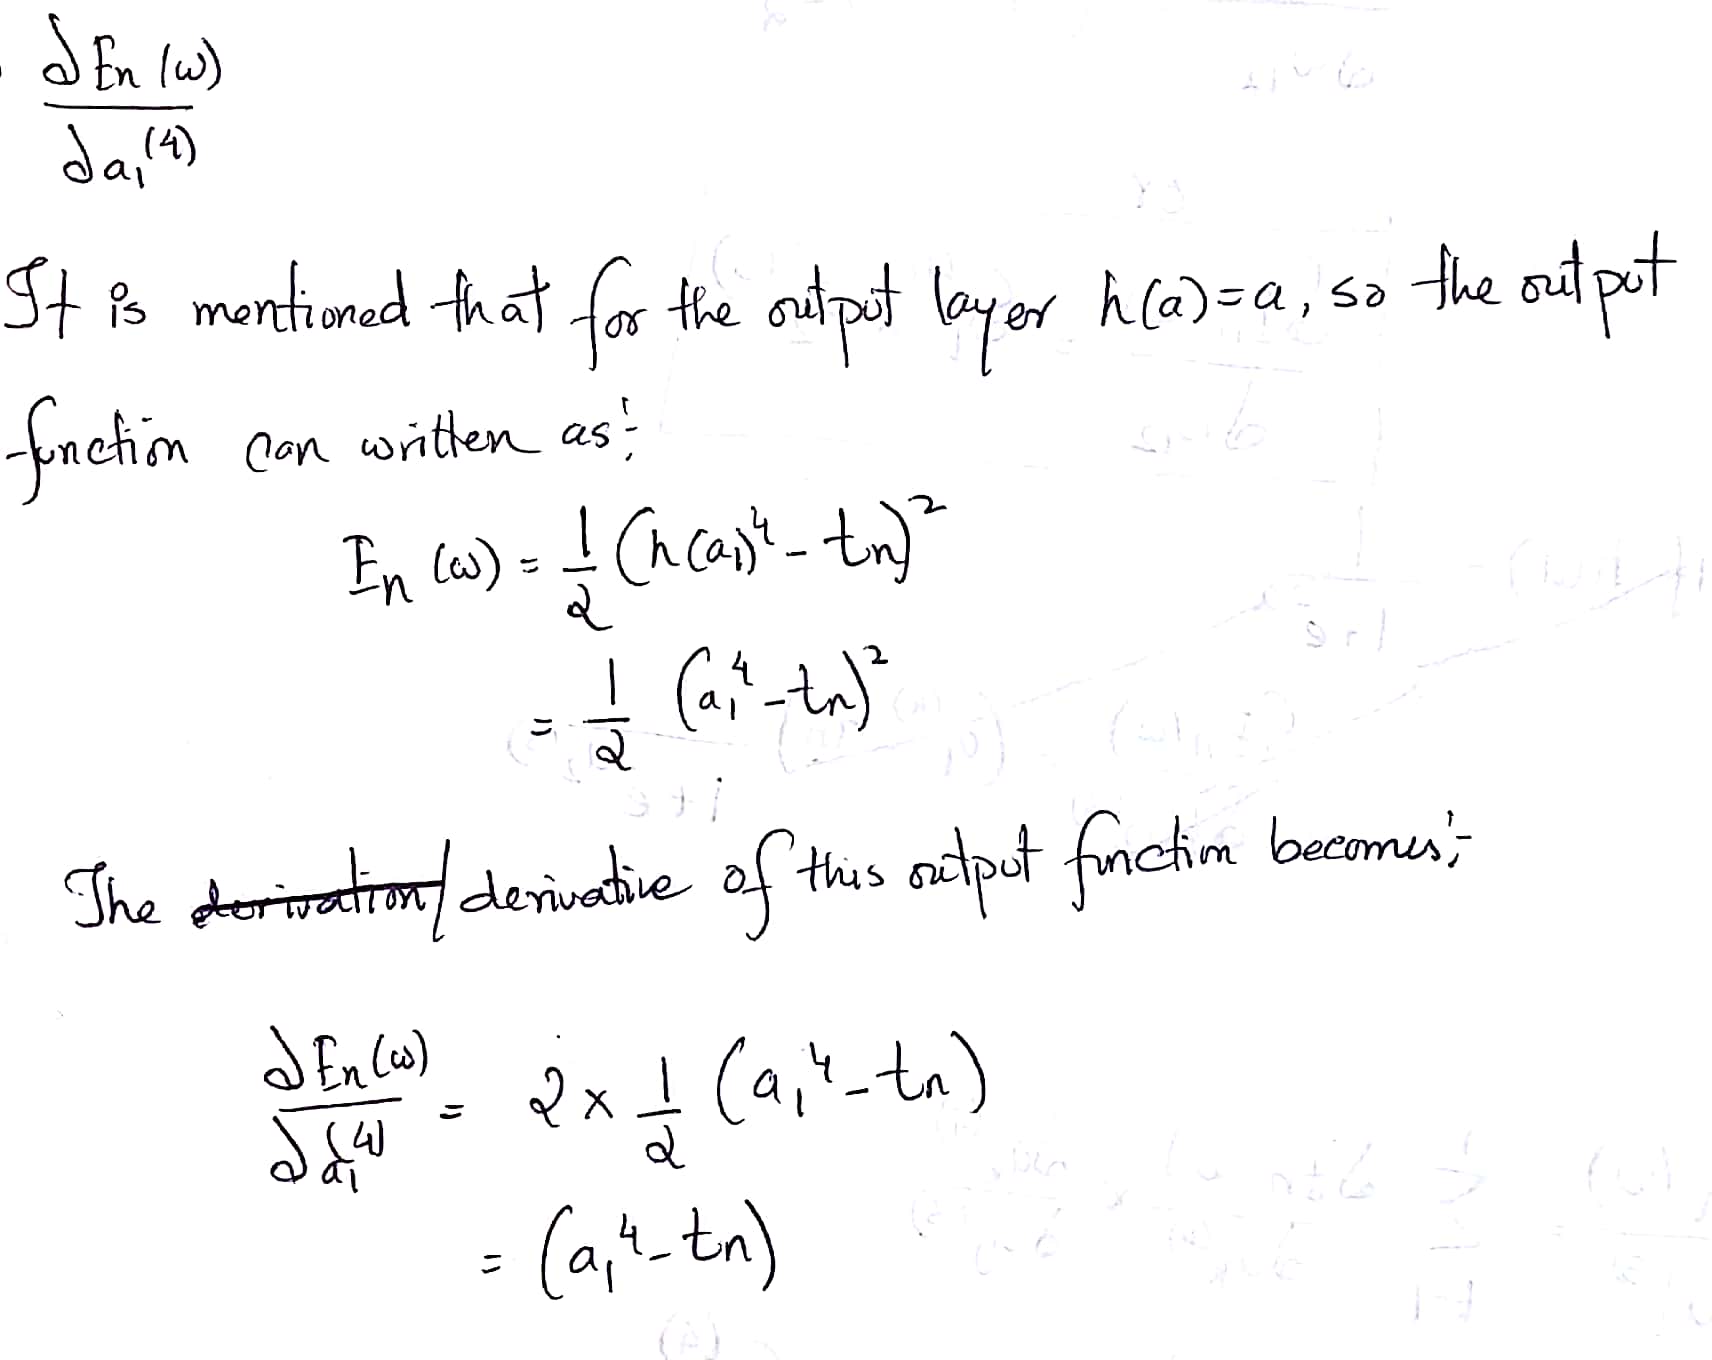 ∂En(w)
∂a₁⁽⁴⁾
It is mentioned that for the output layer h(a)=a, so the output
function can written as:-
En(w) = 1/2 (h(a₁)⁴ - tn)²
= 1/2 (a₁⁴ - tn)²
The derivation derivative of this output function becomes:-
∂En(w)/∂a₁⁽⁴⁾ = 2 x 1/2 (a₁⁴ - tn)
= (a₁⁴ - tn)